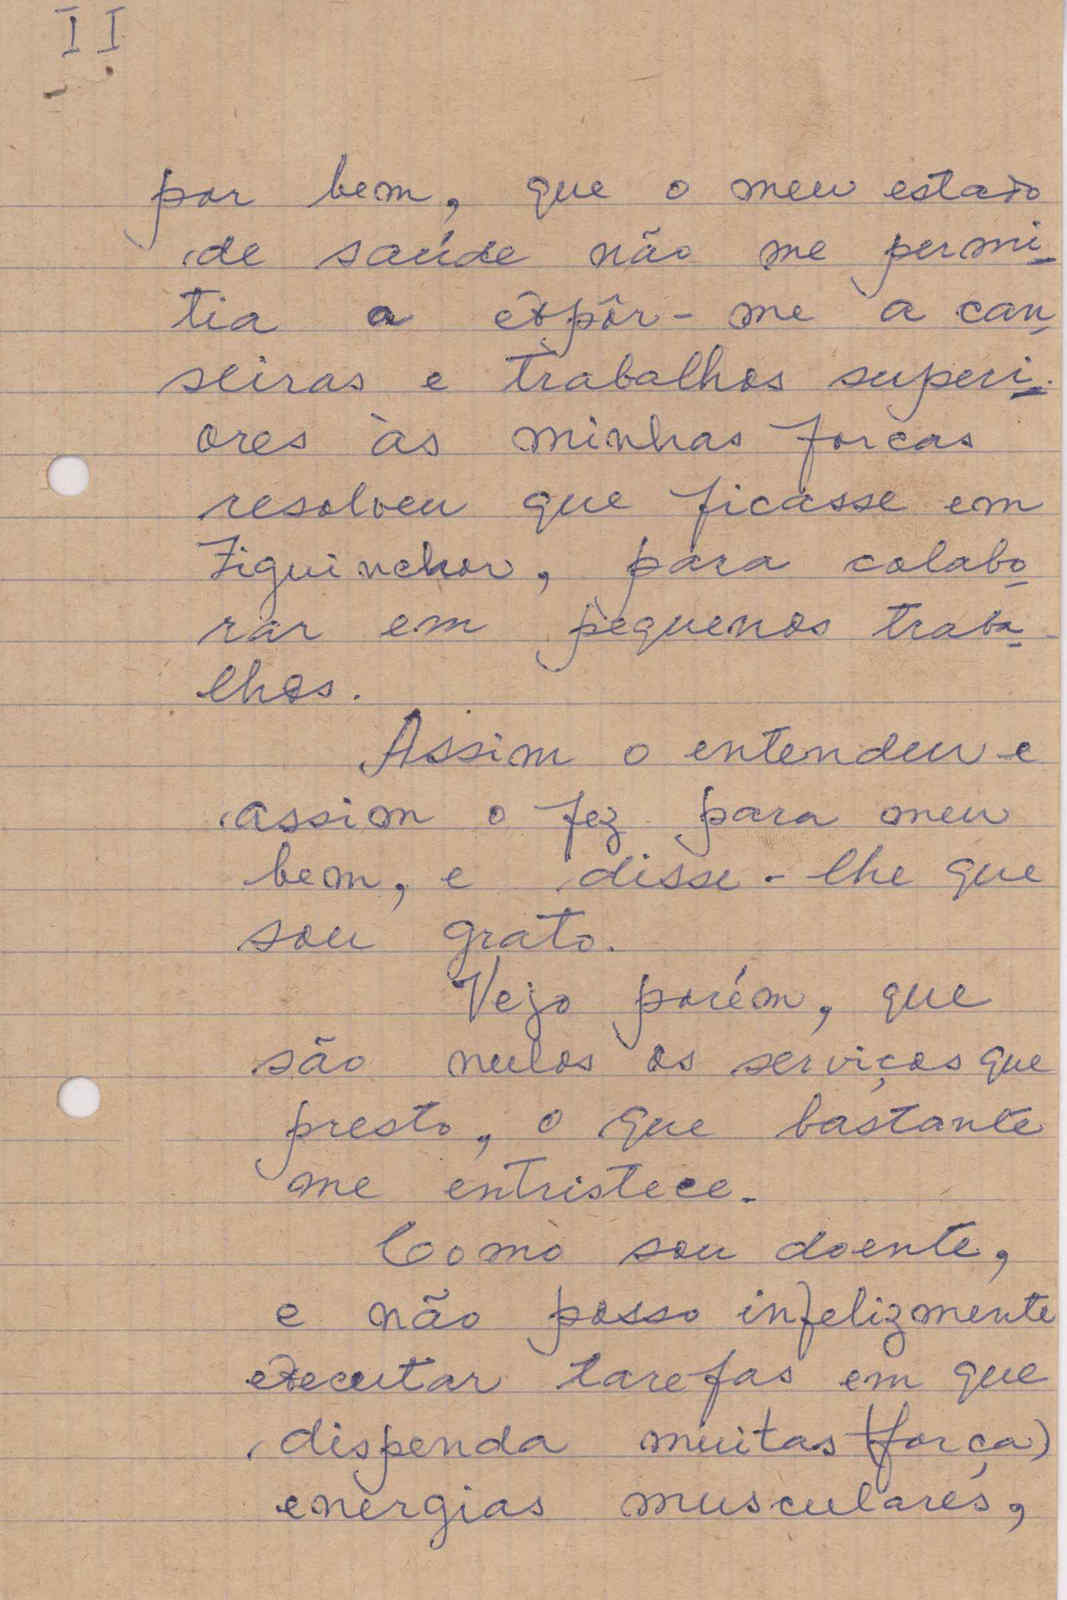 II
por bem, que o meu estado
de saúde não me permi-
tia a expôr-me a can-
seiras e trabalhos superi-
ores às minhas forcas
resolveu que ficasse em
Ziguinchor, para colabo-
rar em pequenos traba-
lhos.
Assim o entendeu e
assim o fez para meu
bem, e disse-lhe que
sou grato.
Vejo porém, que
são nulos os serviços que
presto, o que bastante
me entristece.
Como sou doente,
e não posso infelizmente
executar tarefas em que
dispenda muitas (força)
energias musculares,